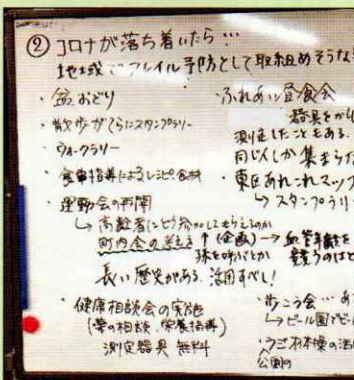 ② コロナが落ち着いたら…
地域でフレイル予防として取組めそうな
・盆おどり
・散歩がてらにスタンプラリー
・ウォークラリー
・食事指導によるレシピ、食材
・運動会の再開
↳ 高齢者にどう参加してもらえるのか
町内会の考え方 ↑(企画)
孫を呼ぶがとか
長い歴史がある。活用すべし!
・健康相談会の実施
(薬の相談、栄養指導)
測定器具 無料
・ふれあい昼食会
器具をかり
測定したこともある。
同じ人しか集まらな
・東区あれこれマップ
↳ スタンプラリー
→ 血管年齢を
競うのはど
・歩こう会…あ
↳ ビール園でビー
・ラジオ体操の活
公園の